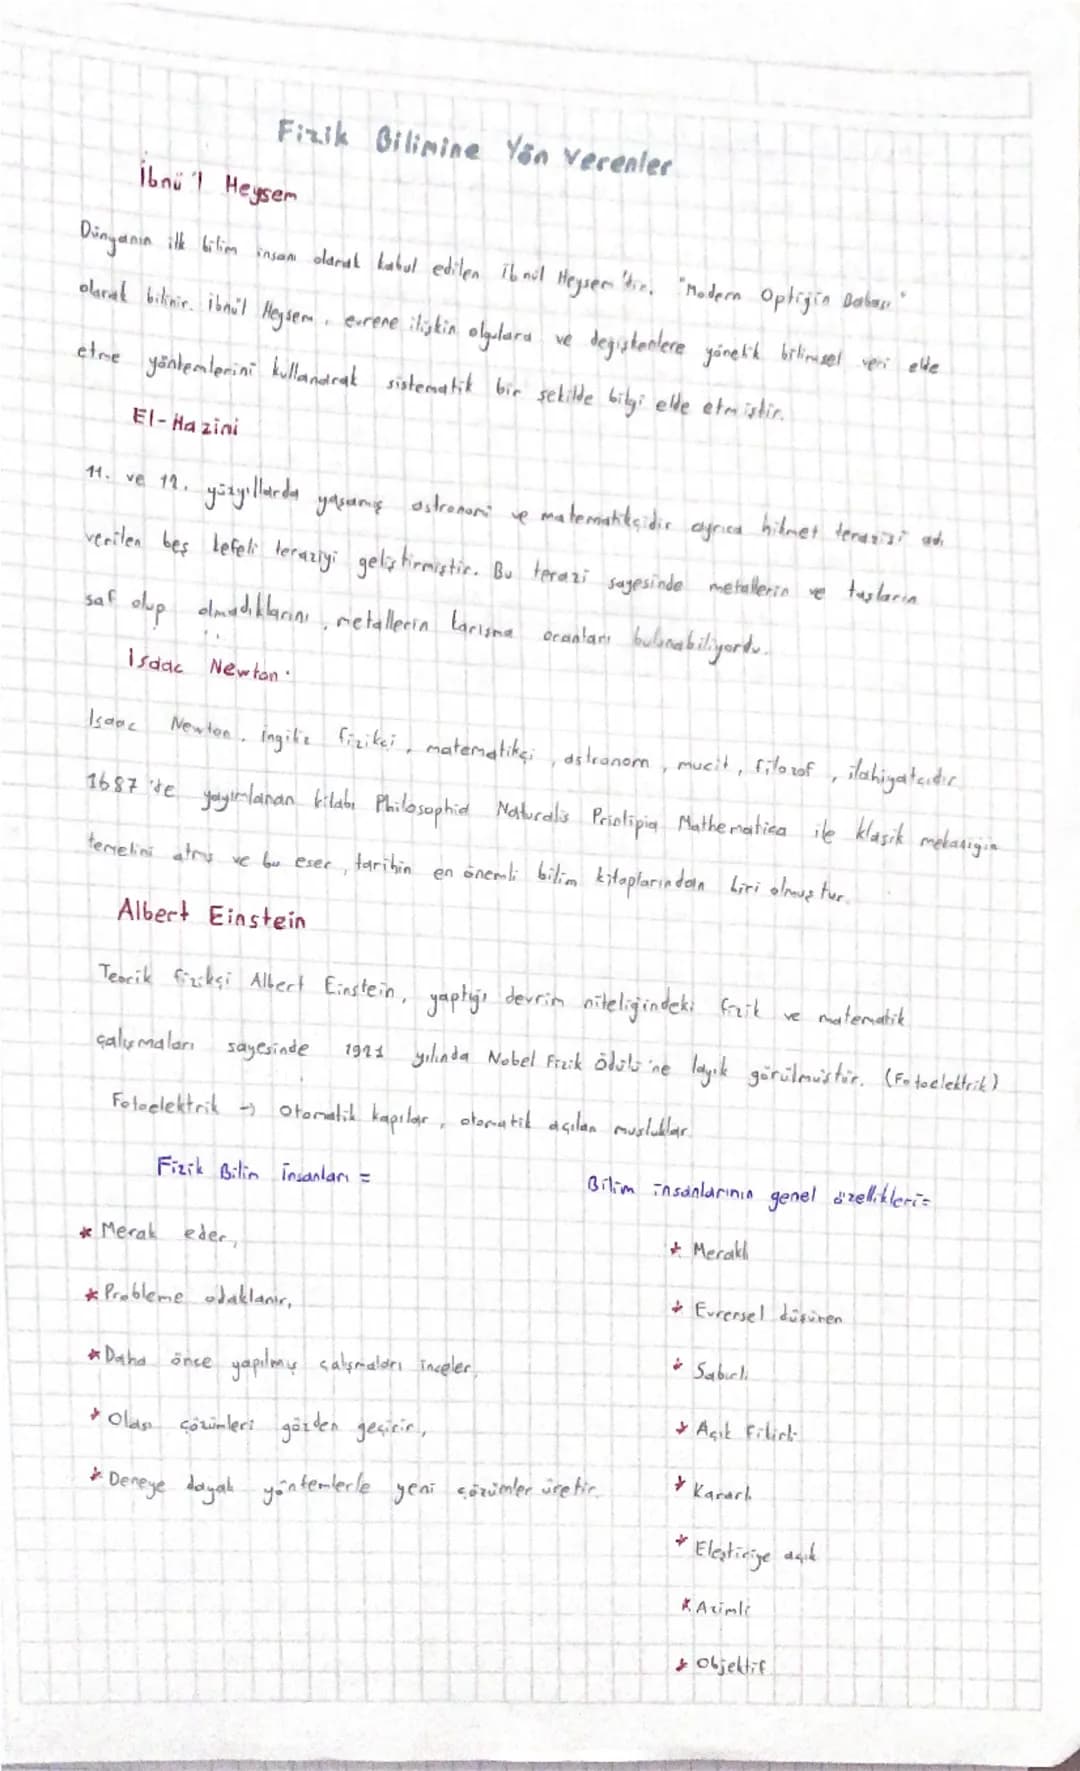 Fizik Bilimine Yön Verenler
İbnü'l Heysem
Dünyanın ilk bilim insanı olarak kabul edilen İbnül Heysem'dir. "Modern Optiğin Babası"
olarak bilinir. İbnü'l Heysem, evrene ilişkin olgulara ve değişkenlere yönelik bilimsel veri elde
etme yöntemlerini kullanarak sistematik bir şekilde bilgi elde etmiştir.
El-Hazini
11. ve 12. yüzyıllarda yaşamış astronomi ve matematikçidir ayrıca hikmet terazisi adı
verilen beş kefeli teraziyi geliştirmiştir. Bu terazi sayesinde metallerin ve taşların
saf olup olmadıklarını, metallerin karışma oranları bulunabiliyordu.
İsaac Newton.
Isaac Newton, ingiliz fizikçi, matematikçi, astronom, mucit, filozof, ilahiyatçıdır
1687'de yayımlanan kitabı Philosophia Naturalis Prinlipia Mathematica ile klasik mekaniğin
temelini atmış ve bu eser, tarihin en önemli bilim kitaplarından biri olmuştur.
Albert Einstein
Teorik fizikçi Albert Einstein, yaptığı devrim niteliğindeki fizik ve matematik
çalışmaları sayesinde 1921 yılında Nobel Fizik Ödülü'ne layık görülmüştür. (Fotoelektrik)
Fotoelektrik → Otomatik kapılar, otomatik açılan musluklar.
Fizik Bilim İnsanları =
* Merak eder,
* Probleme odaklanır,
* Daha önce yapılmış çalışmaları inceler,
* Olası çözümleri gözden geçirir,
* Deneye dayalı yöntemlerle yeni çözümler üretir.
Bilim insanlarının genel özellikleri=
* Meraklı
* Evrensel düşünen
* Sabırlı
* Açık Fikirli
* Kararlı
* Eleştiriye açık
* Azimli
* Objektif